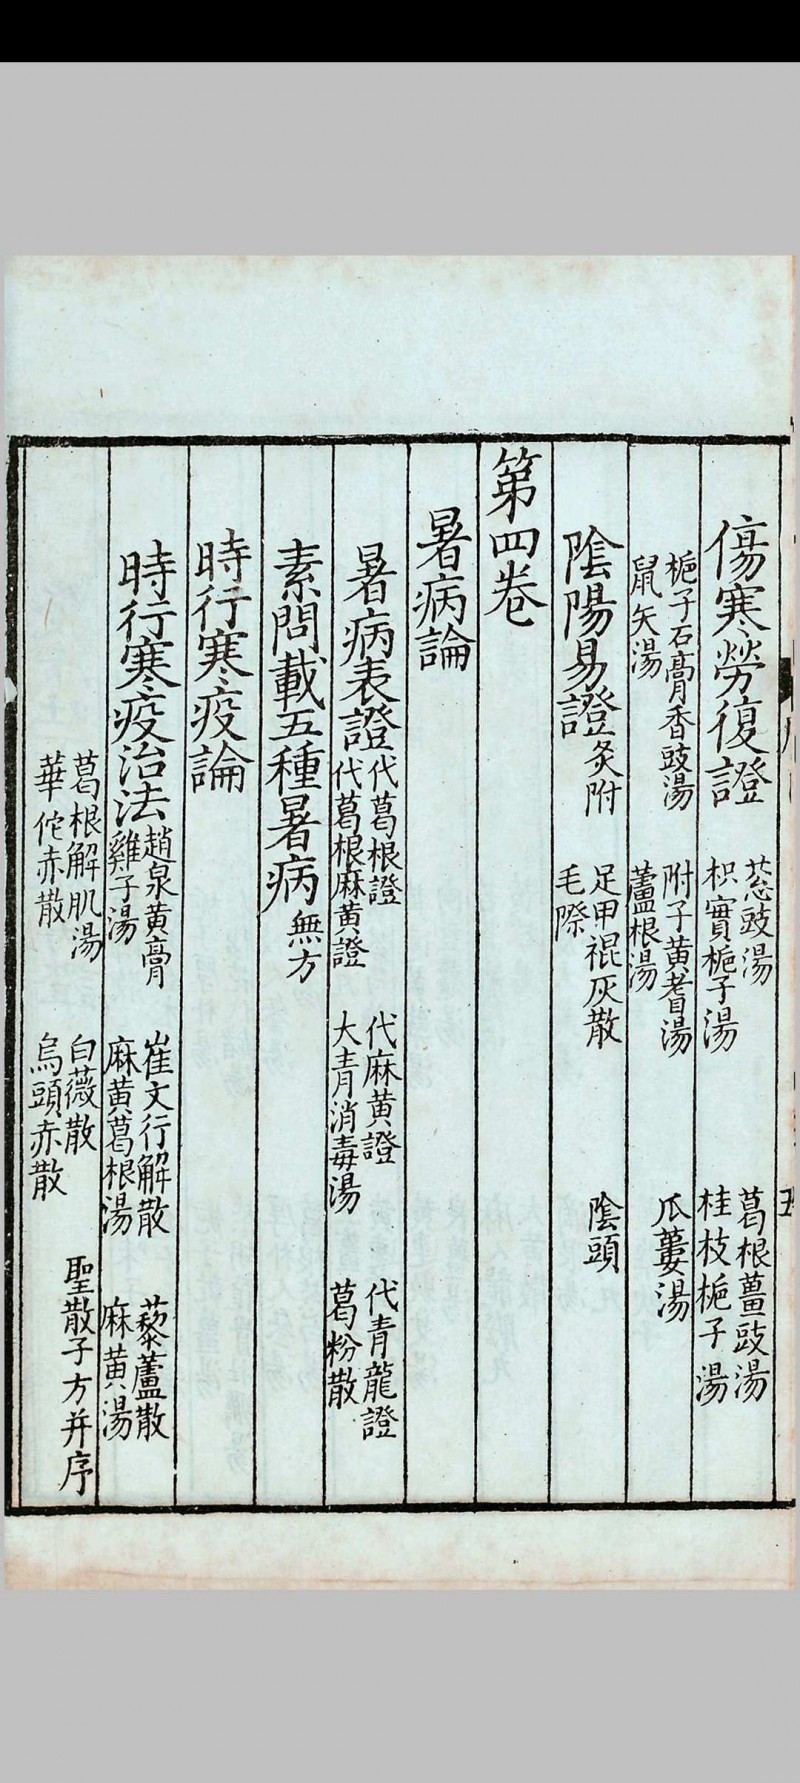 傷寒勞復證 葱豉湯 葛根薑豉湯
枳實梔子湯 桂枝梔子湯
梔子石膏香豉湯 附子黃耆湯 瓜蔞湯
鼠矢湯 蘆根湯
陰陽易證 灸附 足甲裩灰散 陰頭
毛際
第四卷
暑病論
暑病表證 代葛根證 代麻黃證 代青龍證
代葛根麻黃證 大青消毒湯 葛粉散
素問載五種暑病 無方
時行寒疫論
時行寒疫治法 趙泉黃膏 崔文行解散 藜蘆散
雞子湯 麻黃葛根湯 麻黃湯
葛根解肌湯 白薇散 聖散子方并序
華佗赤散 烏頭赤散
五